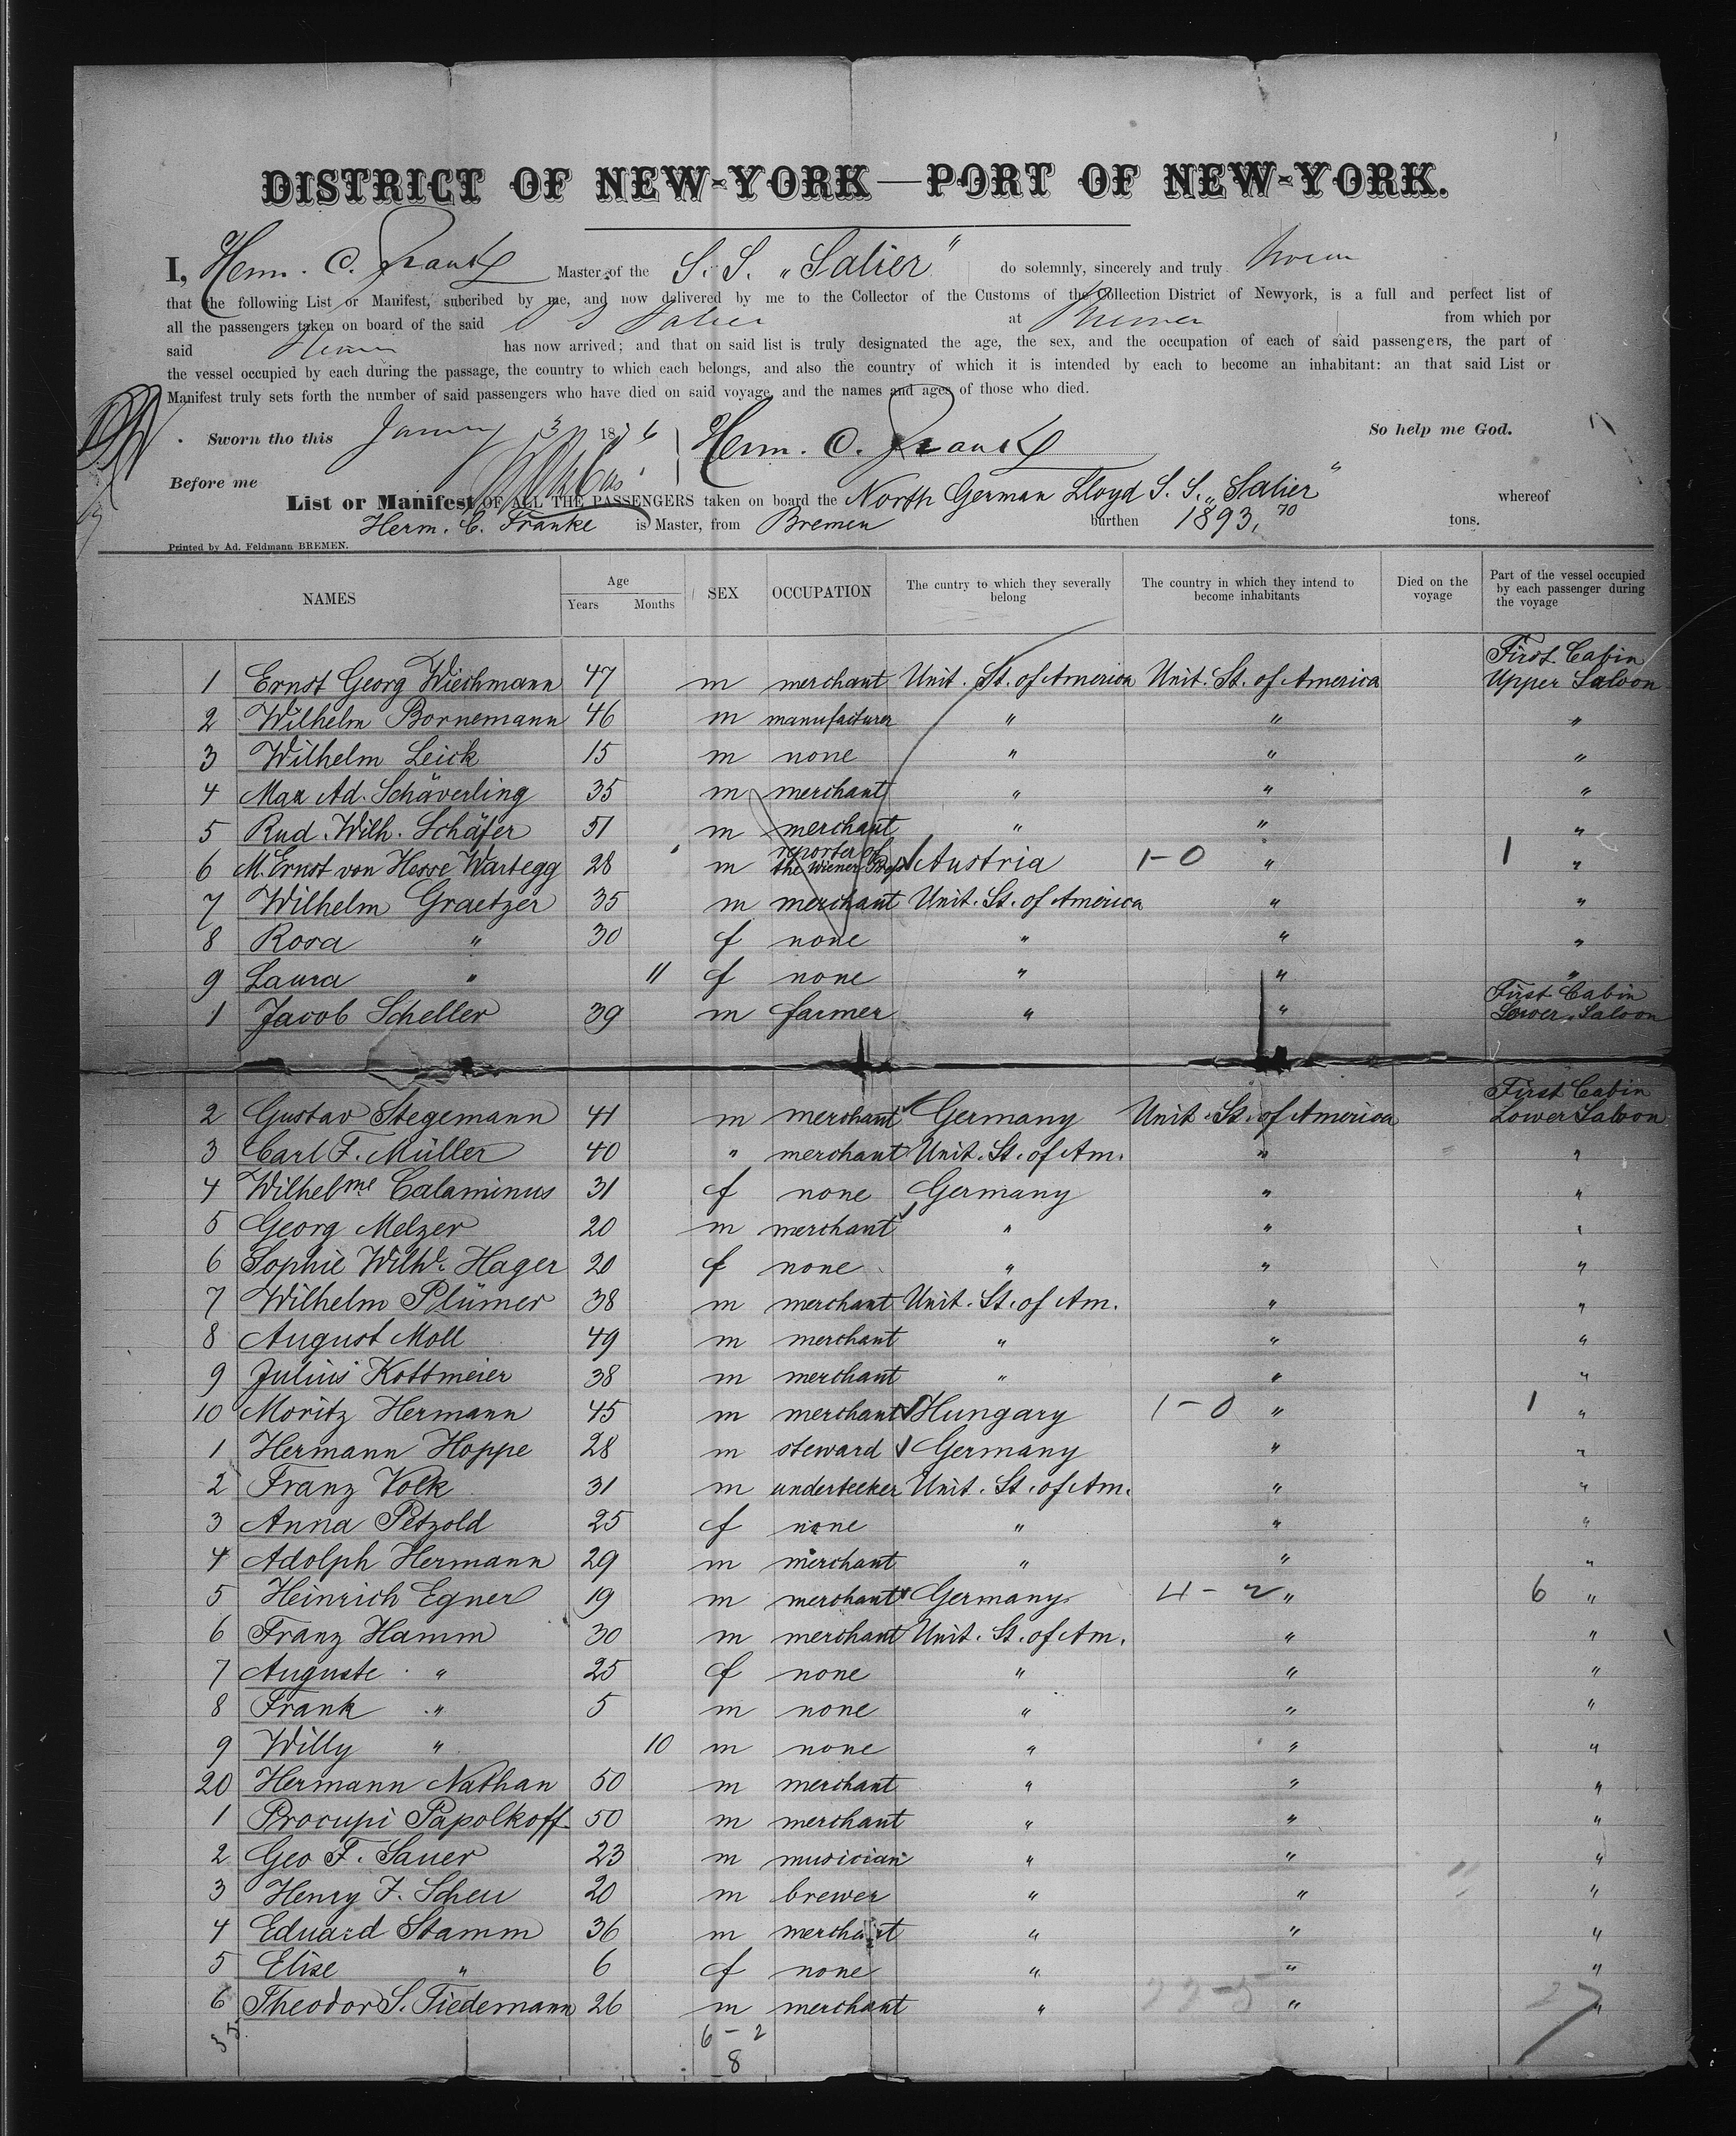 DISTRICT OF NEW-YORK—PORT OF NEW-YORK.
I, Herm. C. Franke Master of the S. S. „Salier" do solemnly, sincerely and truly swear
that the following List or Manifest, subcribed by me, and now delivered by me to the Collector of the Customs of the Collection District of Newyork, is a full and perfect list of
all the passengers taken on board of the said S S Salier at Bremen from which por
said has now arrived; and that on said list is truly designated the age, the sex, and the occupation of each of said passengers, the part of
the vessel occupied by each during the passage, the country to which each belongs, and also the country of which it is intended by each to become an inhabitant: an that said List or
Manifest truly sets forth the number of said passengers who have died on said voyage, and the names and ages of those who died.
Sworn tho this January 3 1876 Herm. C. Franke So help me God.
Before me
List or Manifest OF ALL THE PASSENGERS taken on board the North German Lloyd S. S. „Salier" whereof
Herm. C. Franke is Master, from Bremen burthen 1893,70 tons.
Printed by Ad. Feldmann BREMEN.
NAMES Age Years Months SEX OCCUPATION The cuntry to which they severally belong The country in which they intend to become inhabitants Died on the voyage Part of the vessel occupied by each passenger during the voyage
1 Ernst Georg Wiechmann 47 m merchant Unit. St. of America Unit. St. of America First Cabin Upper Saloon
2 Wilhelm Bornemann 46 m manufacturer " " "
3 Wilhelm Leick 15 m none " " "
4 Max Ad. Schäverling 35 m merchant " " "
5 Rud. Wilh. Schäfer 51 m merchant " " "
6 M. Ernst von Hesse Wartegg 28 m reporter of the Wiener Austria 1-0 " 1 "
7 Wilhelm Graetzer 35 m merchant Unit. St. of America " "
8 Rosa " 30 f none " " "
9 Laura " 11 f none " " "
1 Jacob Scheller 39 m farmer " " First Cabin Lower Saloon
2 Gustav Stegemann 41 m merchant Germany Unit. St. of America First Cabin Lower Saloon
3 Carl F. Müller 40 " merchant Unit. St. of Am. " "
4 Wilhelme Calaminus 31 f none Germany " "
5 Georg Melzer 20 m merchant " " "
6 Sophie Wilhe. Hager 20 f none " " "
7 Wilhelm Plümer 38 m merchant Unit. St. of Am. " "
8 August Moll 49 m merchant " " "
9 Julius Kottmeier 38 m merchant " " "
10 Moritz Hermann 45 m merchant Hungary 1-0 " 1 "
1 Hermann Hoppe 28 m steward Germany " "
2 Franz Volk 31 m underteeker Unit. St. of Am. " "
3 Anna Petzold 25 f none " " "
4 Adolph Hermann 29 m merchant " " "
5 Heinrich Egner 19 m merchant Germany 4-2 " 6 "
6 Franz Hamm 30 m merchant Unit. St. of Am. " "
7 Auguste " 25 f none " " "
8 Frank " 5 m none " " "
9 Willy " 10 m none " " "
20 Hermann Nathan 50 m merchant " " "
1 Procupi Papolkoff 50 m merchant " " "
2 Geo F. Sauer 23 m musician " " "
3 Henry F. Scheu 20 m brewer " " "
4 Eduard Stamm 36 m merchant " " "
5 Elise " 6 f none " " "
6 Theodor S. Tiedemann 26 m merchant " 22-5 " 27 "
35 6-2
8